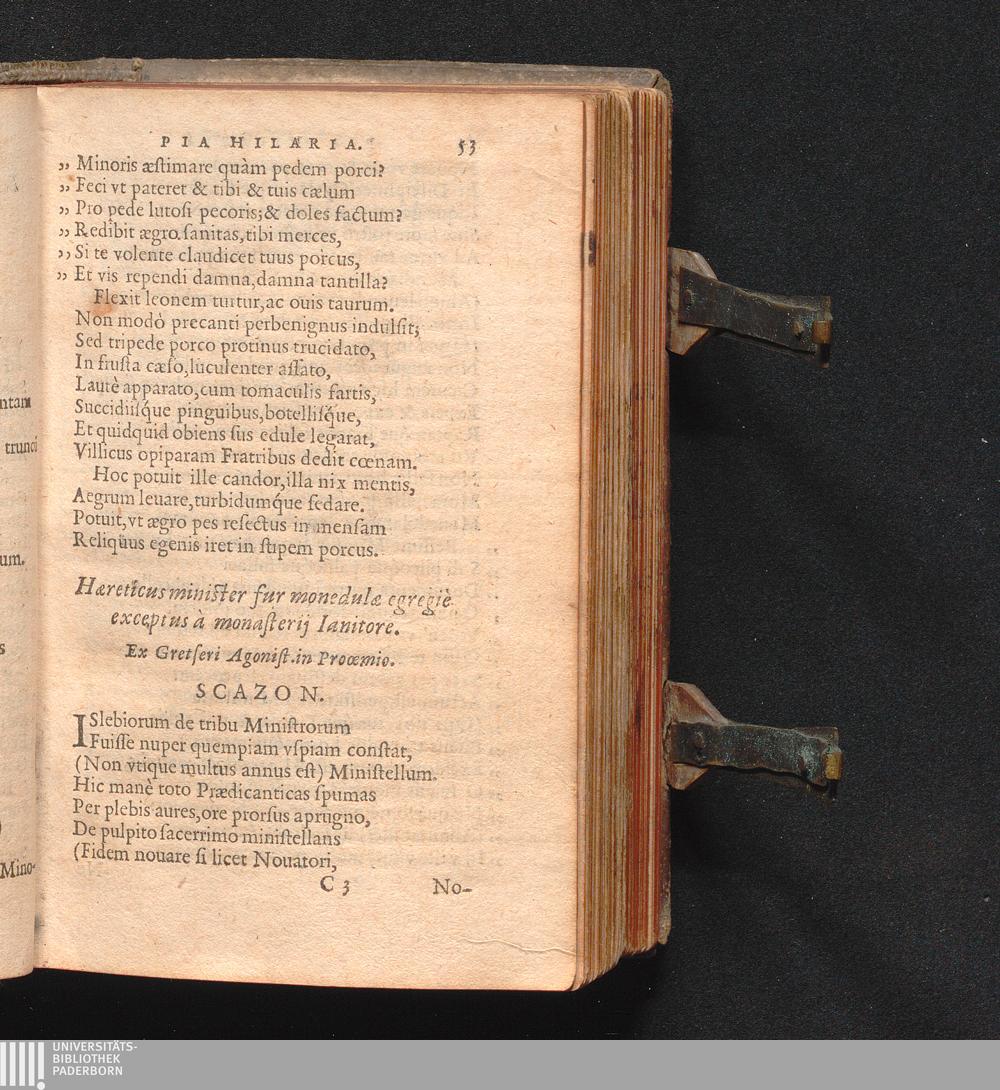 ntam
trunci
um.
s
)
Mino-
PIA HILARIA. 53
„ Minoris æstimare quàm pedem porci?
„ Feci vt pateret & tibi & tuis cælum
„ Pro pede lutosi pecoris; & doles factum?
„ Redibit ægro sanitas, tibi merces,
„ Si te volente claudicet tuus porcus,
„ Et vis rependi damna, damna tantilla?
Flexit leonem turtur, ac ouis taurum.
Non modò precanti perbenignus indulsit;
Sed tripede porco protinus trucidato,
In frusta cæso, luculenter assato,
Lautè apparato, cum tomaculis fartis,
Succidiisque pinguibus, botellisque,
Et quidquid obiens sus edule legarat,
Villicus opiparam Fratribus dedit cœnam.
Hoc potuit ille candor, illa nix mentis,
Aegrum leuare, turbidumque sedare.
Potuit, vt ægro pes resectus in mensam
Reliquus egenis iret in stipem porcus.
Hæreticus minister fur monedulæ egregiè
exceptus à monasterij Ianitore.
Ex Gretseri Agonist. in Proœmio.
SCAZON.
ISlebiorum de tribu Ministrorum
Fuisse nuper quempiam vspiam constat,
(Non vtique multus annus est) Ministellum.
Hic manè toto Prædicanticas spumas
Per plebis aures, ore prorsus aprugno,
De pulpito sacerrimo ministellans
(Fidem nouare si licet Nouatori,
C 3 No-
UNIVERSITÄTS-
BIBLIOTHEK
PADERBORN